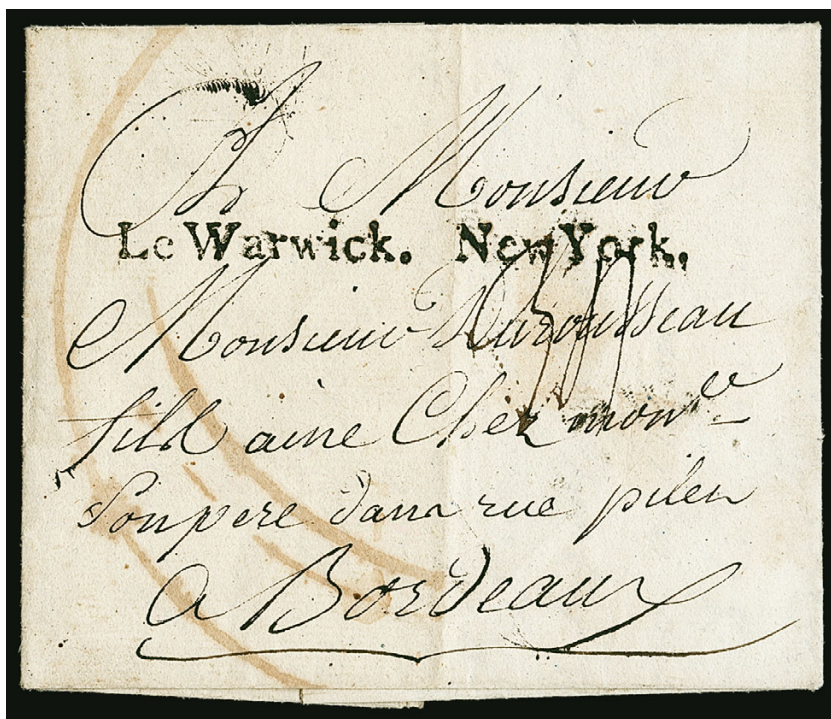 A Monsieur
Le Warwick. New York,
Monsieur Durousseau
fils ainé Chez monr
Son pere dans rue
a Bordeaux